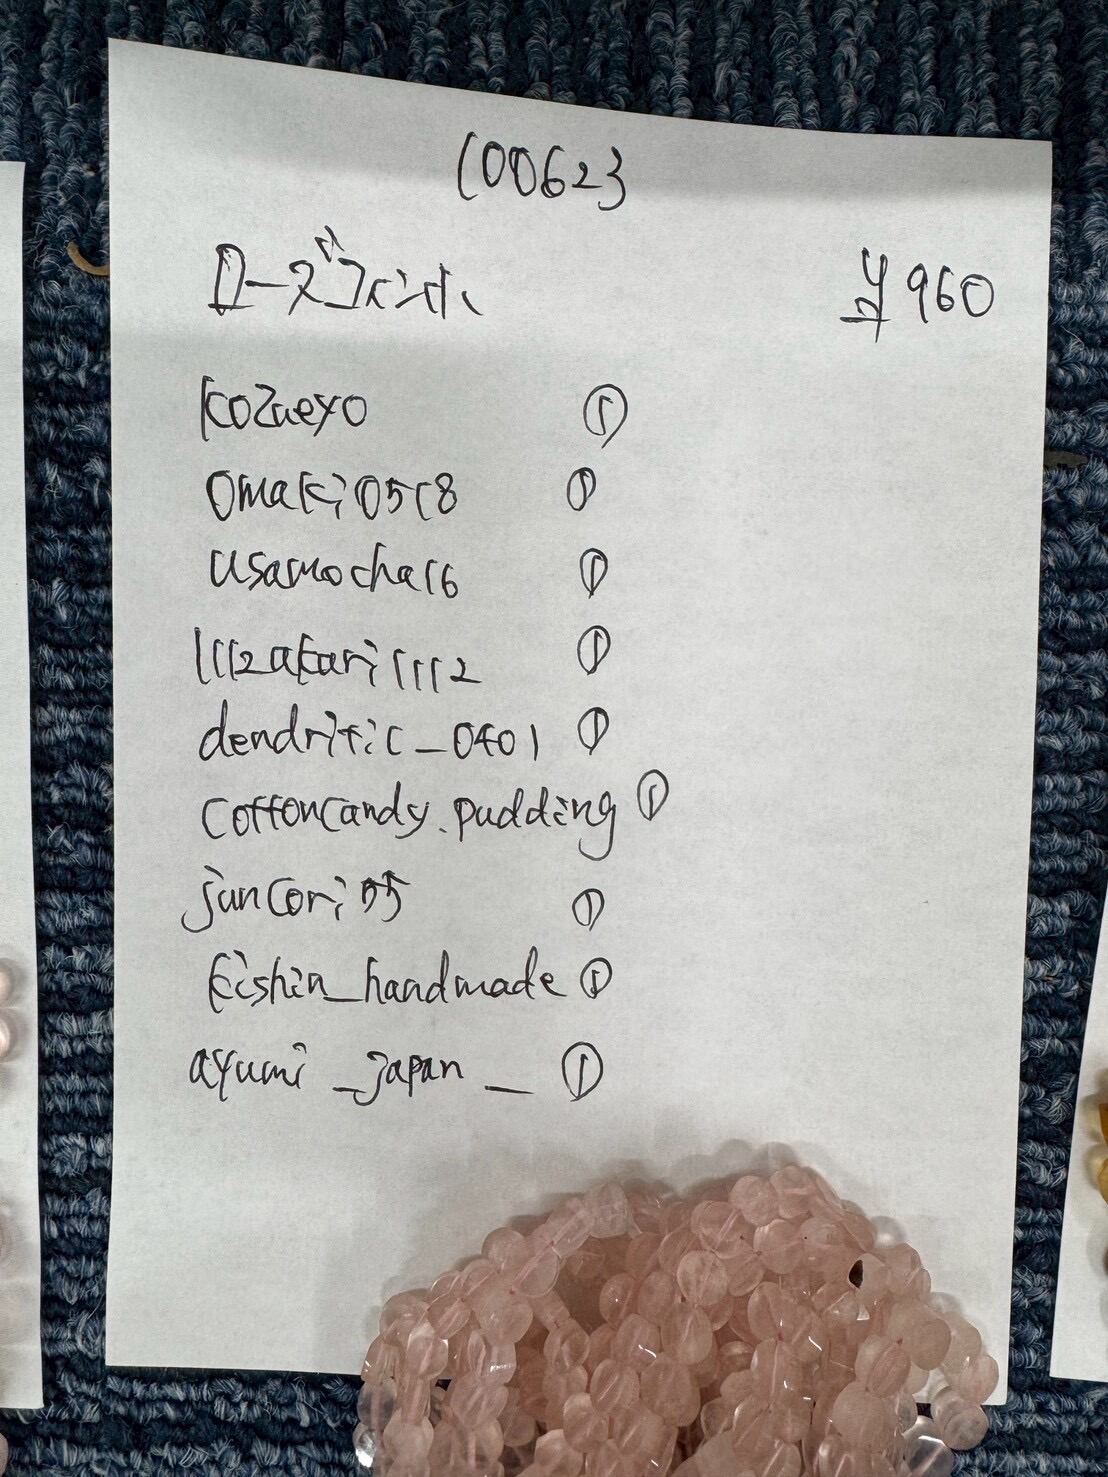 (00623
ローズコイン水
¥960
kozueyo ①
omaki0518 ①
usamocha16 ①
1112akari1112 ①
dendritic_0401 ①
cottoncandy.pudding ①
juncori55 ①
kishin_handmade ①
ayumi_japan_ ①